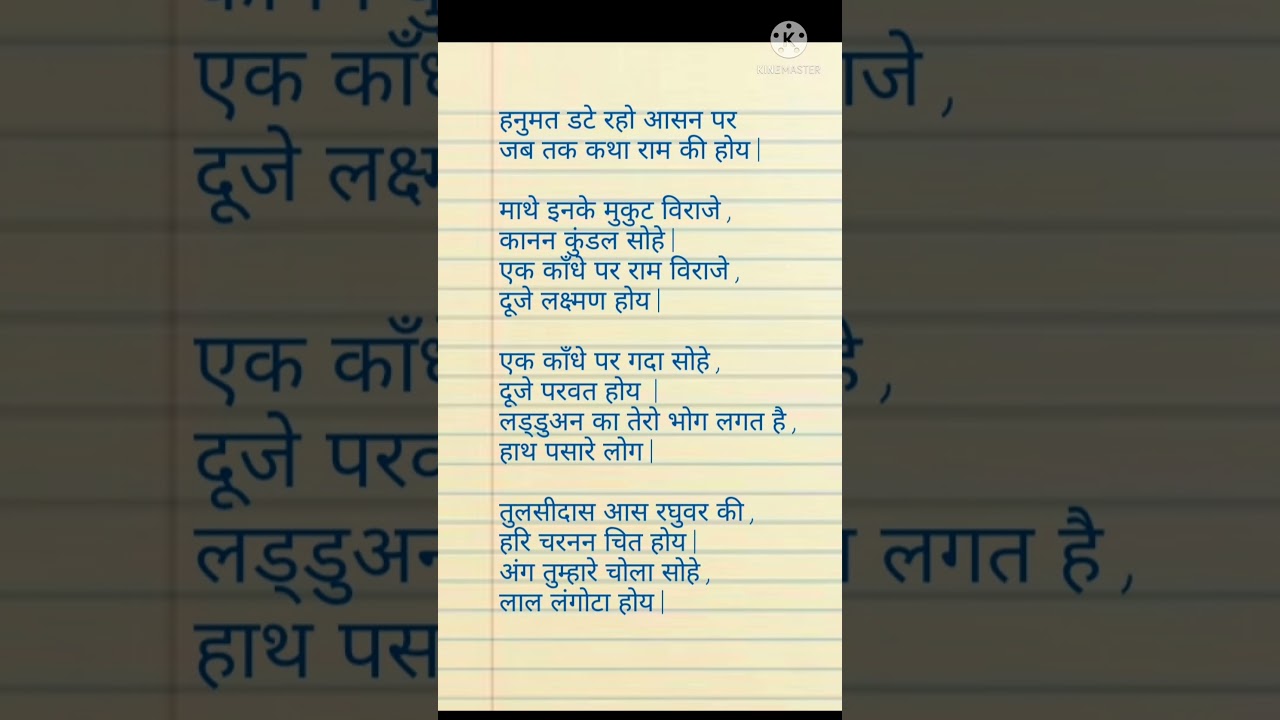 KINEMASTER
हनुमत डटे रहो आसन पर
जब तक कथा राम की होय|
माथे इनके मुकुट विराजे,
कानन कुंडल सोहे|
एक काँधे पर राम विराजे,
दूजे लक्ष्मण होय|
एक काँधे पर गदा सोहे,
दूजे परवत होय |
लड्डुअन का तेरो भोग लगत है,
हाथ पसारे लोग|
तुलसीदास आस रघुवर की,
हरि चरनन चित होय|
अंग तुम्हारे चोला सोहे,
लाल लंगोटा होय|